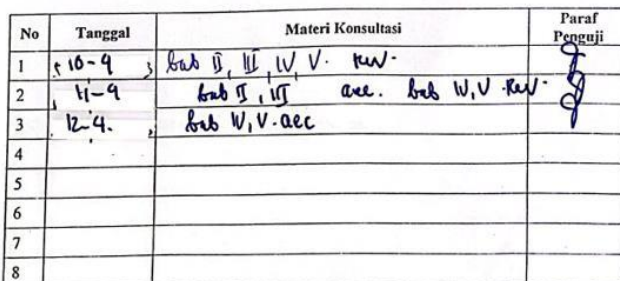 No Tanggal Materi Konsultasi Paraf Penguji
1 10-9 bab II, III, IV V. rev.
2 11-9 bab II, III acc. bab IV, V. Rev.
3 12-9. bab IV, V. acc
4
5
6
7
8